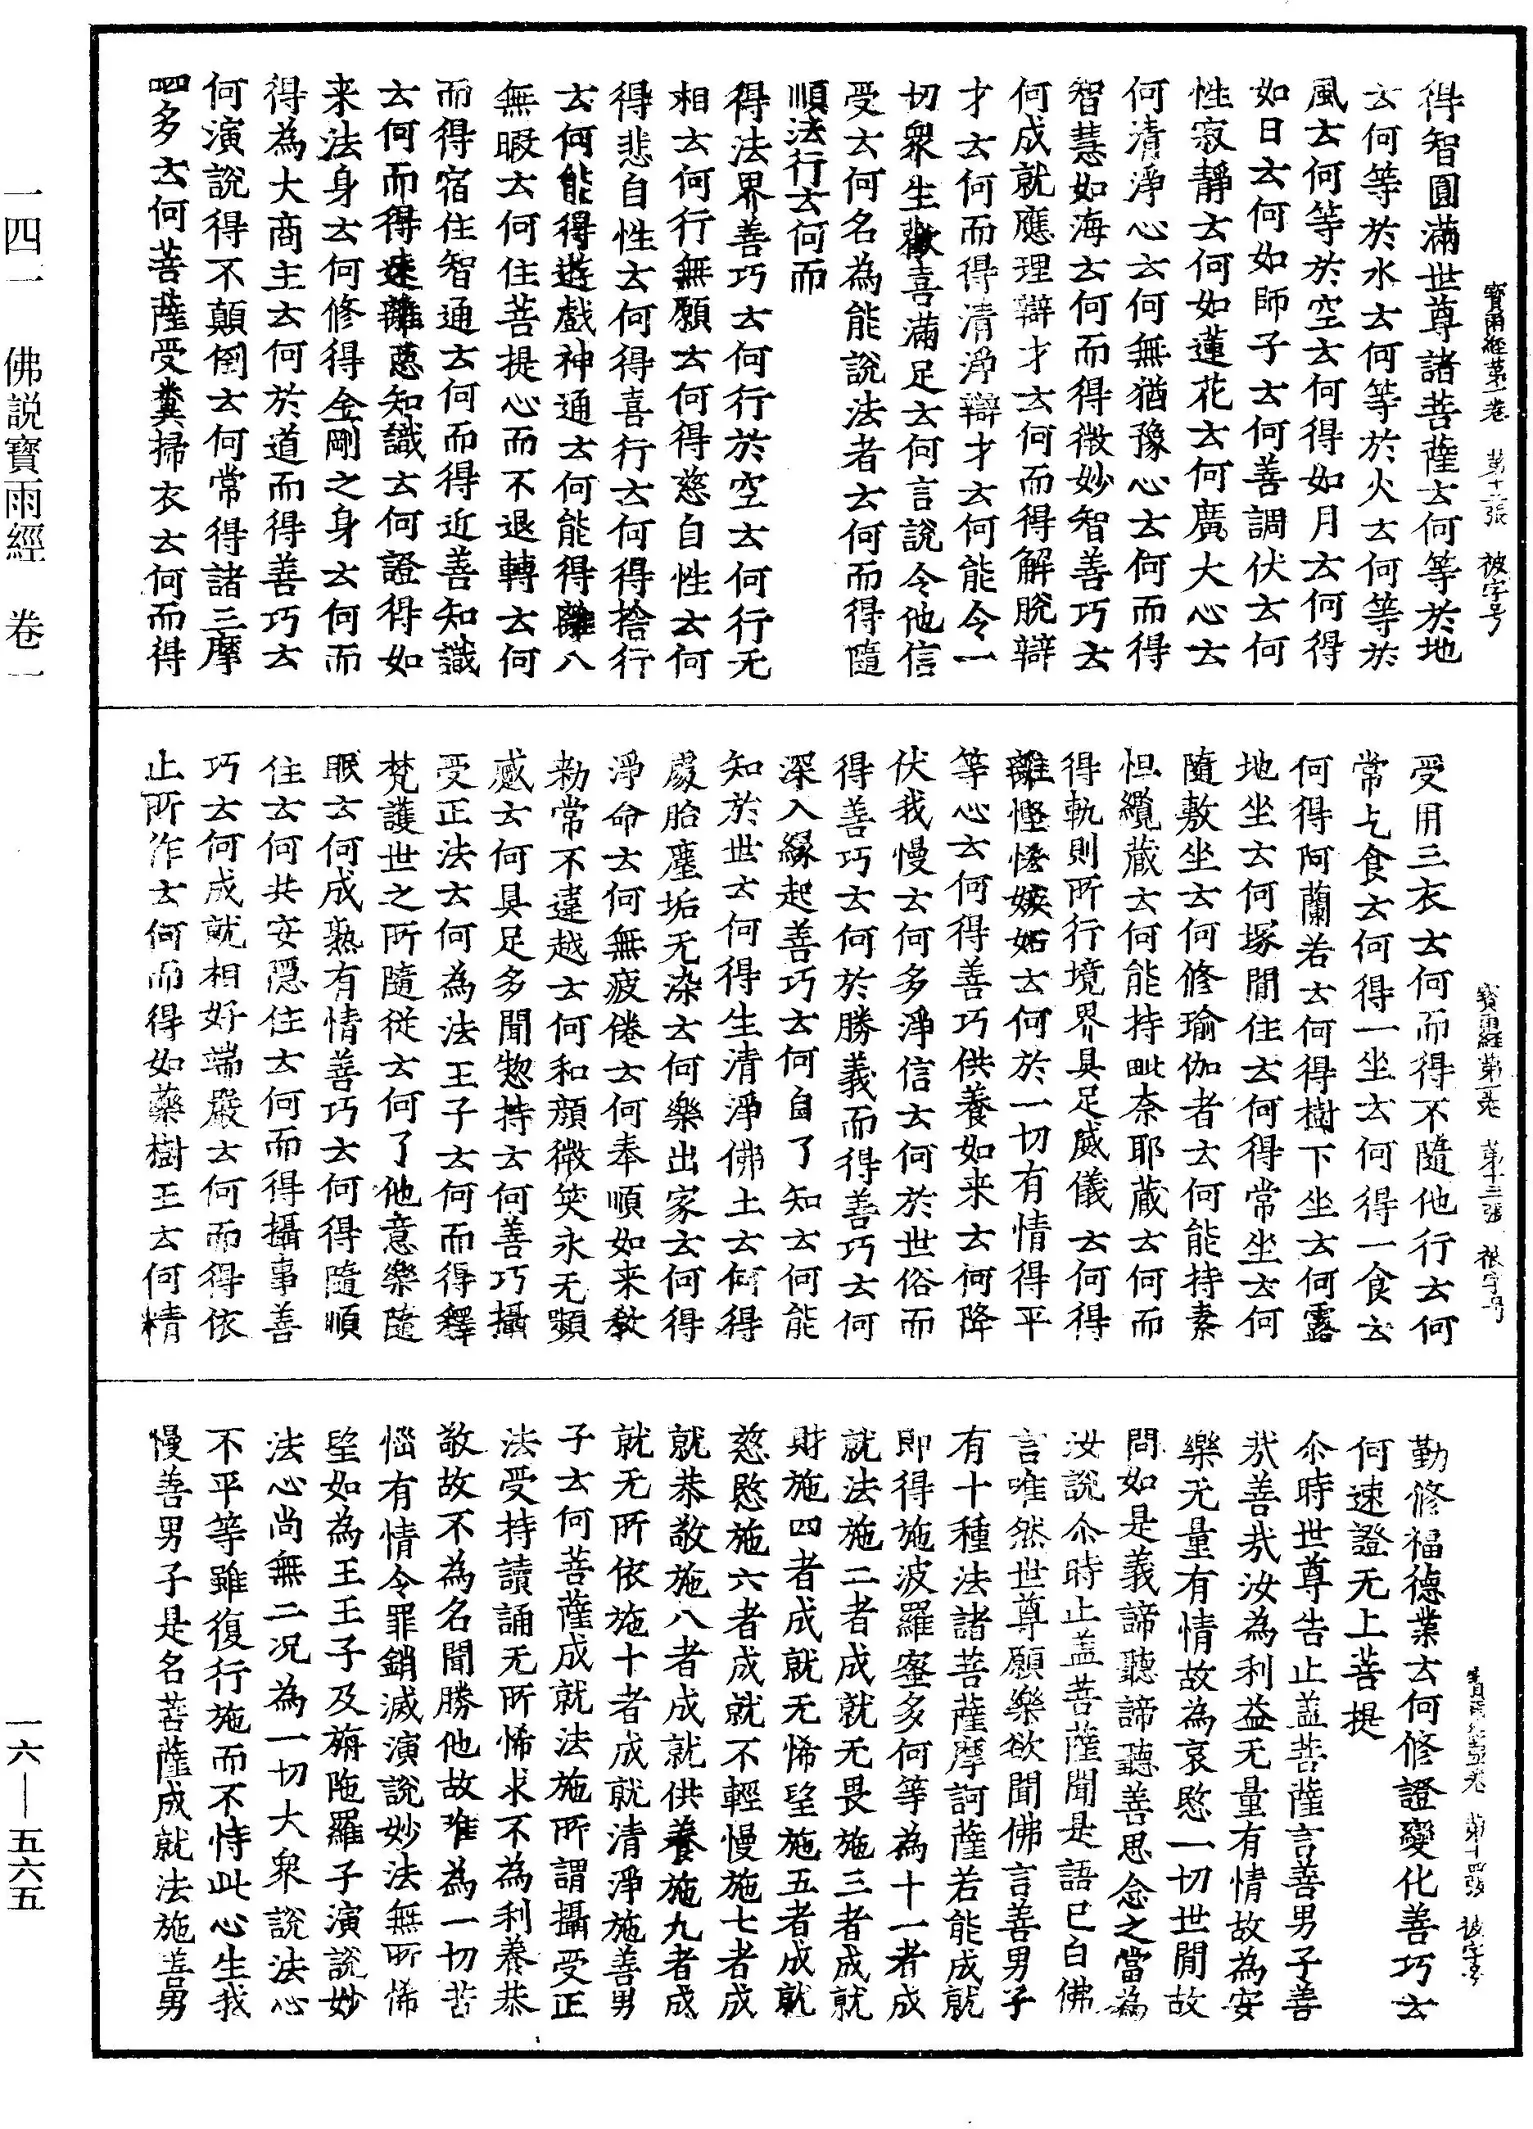 寶雨經第一卷 第十二張 被字号
得智圓滿世尊諸菩薩云何等於地
云何等於水云何等於火云何等於
風云何等於空云何得如月云何得
如日云何如師子云何善調伏云何
性寂靜云何如蓮花云何廣大心云
何清淨心云何無猶豫心云何而得
智慧如海云何而得微妙智善巧云
何成就應理辯才云何而得解脫辯
才云何而得清淨辯才云何能令一
切衆生歡喜滿足云何言說令他信
受云何名為能說法者云何而得隨
順法行云何而
得法界善巧云何行於空云何行无
相云何行無願云何得慈自性云何
得悲自性云何得喜行云何得捨行
云何能得遊戲神通云何能得離八
無暇云何住菩提心而不退轉云何
而得宿住智通云何而得近善知識
云何而得遠離惡知識云何證得如
来法身云何修得金剛之身云何而
得為大商主云何於道而得善巧云
何演說得不顛倒云何常得諸三摩
呬多云何菩薩受糞掃衣云何而得
寶雨經第一卷 第十三張 被字号
受用三衣云何而得不隨他行云何
常乞食云何得一坐云何得一食云
何得阿蘭若云何得樹下坐云何露
地坐云何塚間住云何得常坐云何
隨敷坐云何修瑜伽者云何能持素
怛纜蔵云何能持毗奈耶蔵云何而
得軌則所行境界具足威儀云何得
離慳悋嫉妬云何於一切有情得平
等心云何得善巧供養如来云何降
伏我慢云何多淨信云何於世俗而
得善巧云何於勝義而得善巧云何
深入緣起善巧云何自了知云何能
知於世云何得生清淨佛土云何得
處胎塵垢无染云何樂出家云何得
淨命云何無疲倦云何奉順如来教
勑常不違越云何和顏微笑永无顰
慼云何具足多聞惣持云何善巧攝
受正法云何為法王子云何而得釋
梵護世之所隨從云何了他意樂隨
眠云何成熟有情善巧云何得隨順
住云何共安隱住云何而得攝事善
巧云何成就相好端嚴云何而得依
止所作云何而得如藥樹王云何精
寶雨經第一卷 第十四張 被字号
勤修福德業云何修證變化善巧云
何速證无上菩提
尒時世尊告止盖菩薩言善男子善
㢤善㢤汝為利益无量有情故為安
樂无量有情故為哀愍一切世間故
問如是義諦聽諦聽善思念之當為
汝說尒時止盖菩薩聞是語已白佛
言唯然世尊願樂欲聞佛言善男子
有十種法諸菩薩摩訶薩若能成就
即得施波羅蜜多何等為十一者成
就法施二者成就无畏施三者成就
財施四者成就无悕望施五者成就
慈愍施六者成就不輕慢施七者成
就恭敬施八者成就供養施九者成
就无所依施十者成就清淨施善男
子云何菩薩成就法施所謂攝受正
法受持讀誦无所悕求不為利養恭
敬故不為名聞勝他故唯為一切苦
惱有情令罪銷滅演說妙法無所悕
望如為王王子及旃陁羅子演說妙
法心尚無二况為一切大衆說法心
不平等雖復行施而不恃此心生我
慢善男子是名菩薩成就法施善男
一四一 佛説寶雨經 卷一
一六—五六五